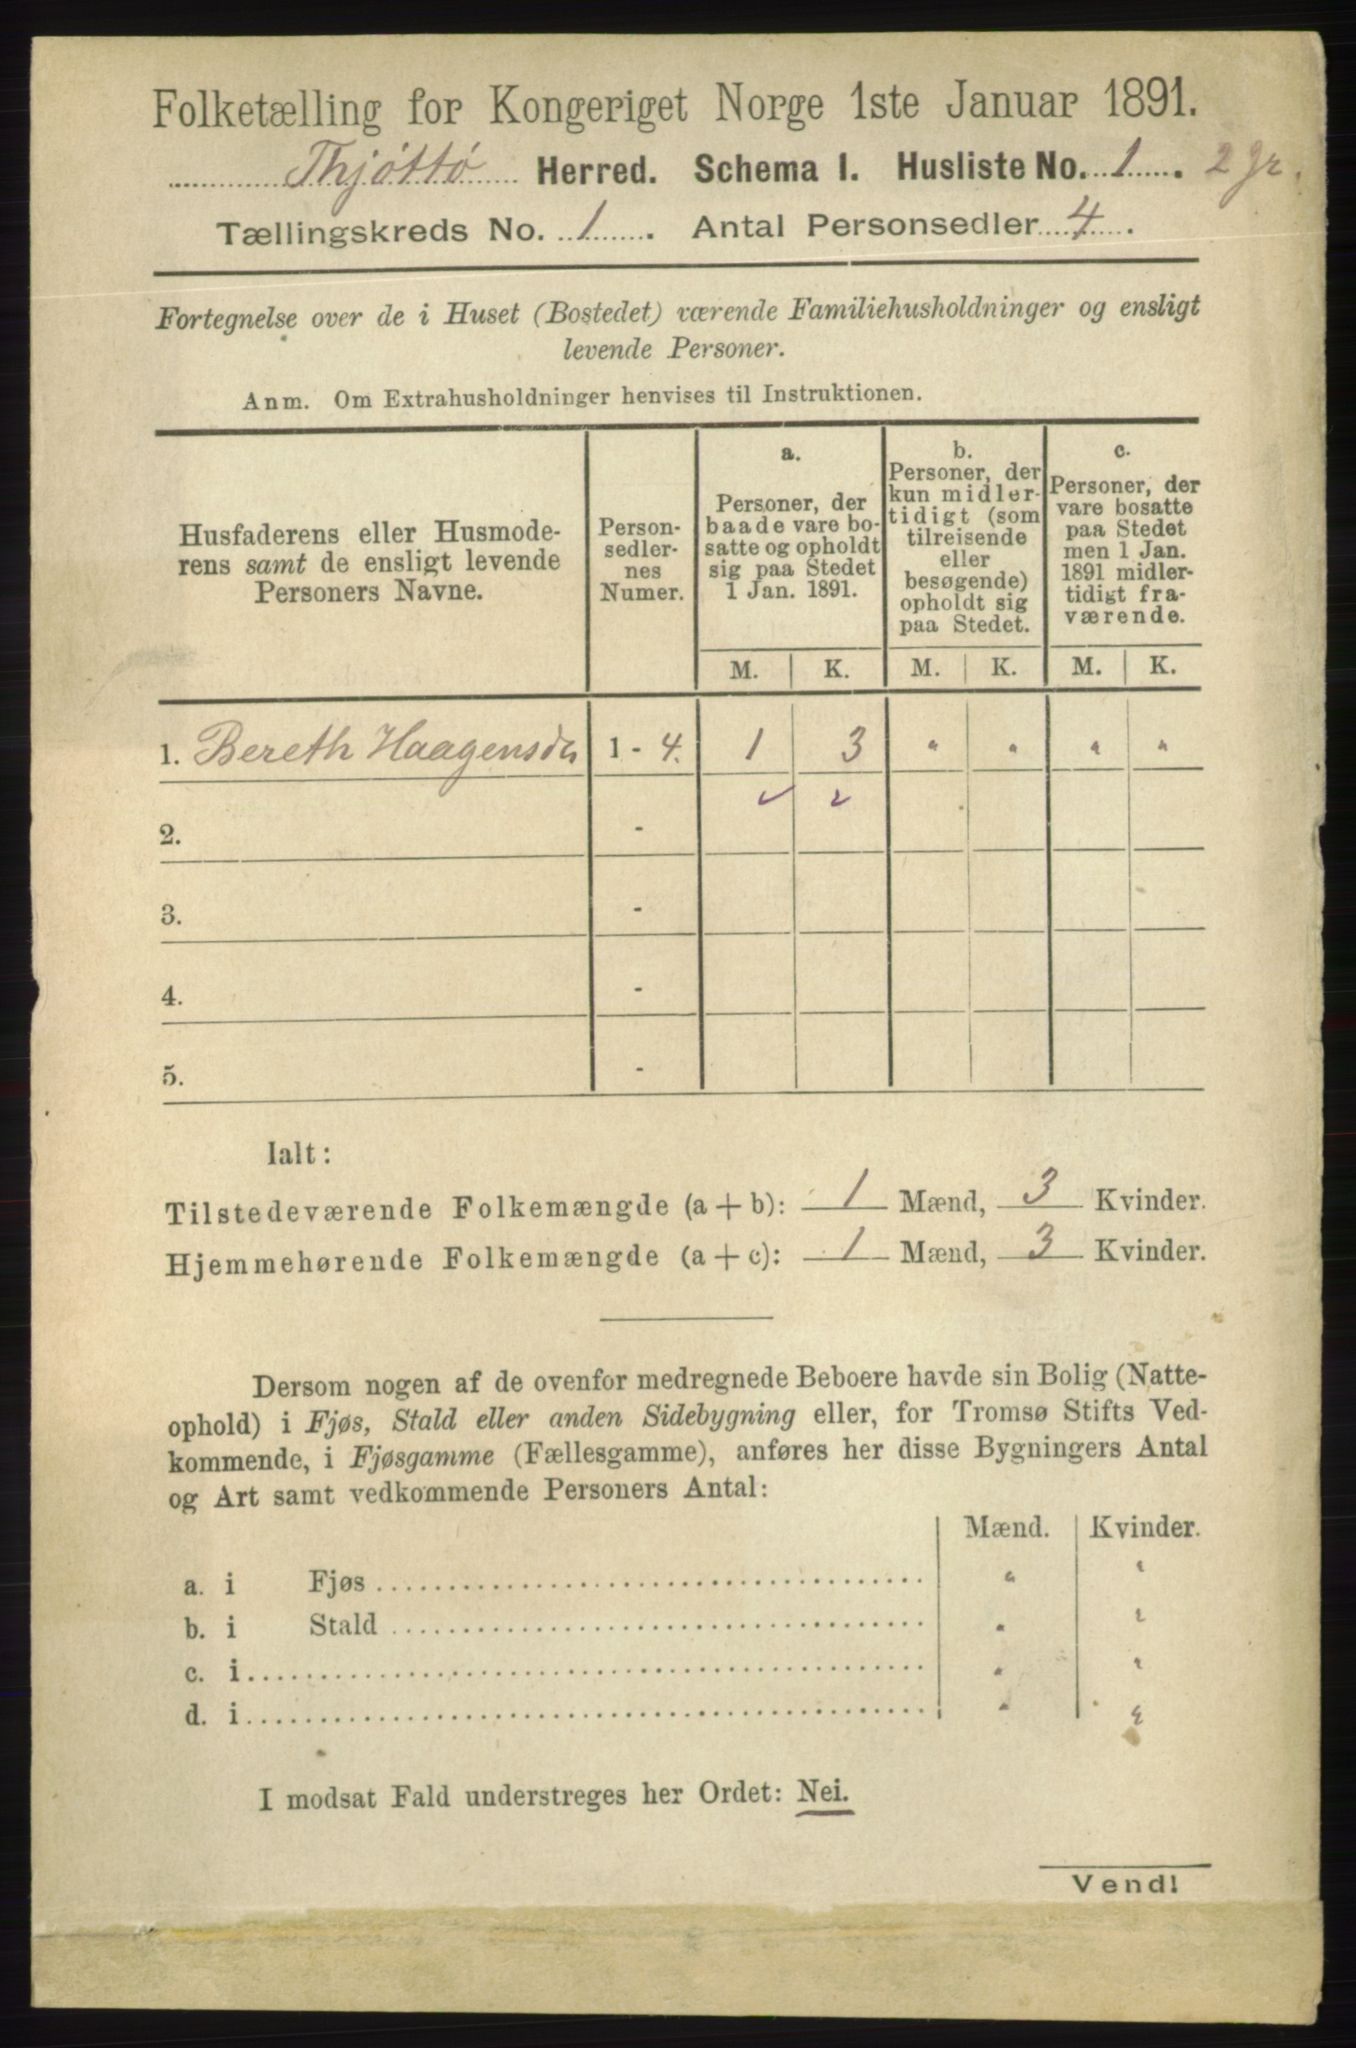 Folketælling for Kongeriget Norge 1ste Januar 1891.
Thjöttö Herred. Schema I. Husliste No. 1. 2 gr.
Tællingskreds No. 1. Antal Personsedler 4.
Fortegnelse over de i Huset (Bostedet) værende Familiehusholdninger og ensligt
levende Personer.
Anm. Om Extrahusholdninger henvises til Instruktionen.
Husfaderens eller Husmode-
rens samt de ensligt levende
Personers Navne.
Person-
sedler-
nes
Numer.
a.
Personer, der
baade vare bo-
satte og opholdt
sig paa Stedet
1 Jan. 1891.
b.
Personer, der
kun midler-
tidigt (som
tilreisende
eller
besøgende)
opholdt sig
paa Stedet.
c.
Personer, der
vare bosatte
paa Stedet
men 1 Jan.
1891 midler-
tidigt fra-
værende.
M. K. M. K. M. K.
1. Bereth Haagensdr 1 - 4. 1 3 " " " "
2. -
3. -
4. -
5. -
Ialt:
Tilstedeværende Folkemængde (a + b): 1 Mænd, 3 Kvinder.
Hjemmehørende Folkemængde (a + c): 1 Mænd, 3 Kvinder.
Dersom nogen af de ovenfor medregnede Beboere havde sin Bolig (Natte-
ophold) i Fjøs, Stald eller anden Sidebygning eller, for Tromsø Stifts Ved-
kommende, i Fjøsgamme (Fællesgamme), anføres her disse Bygningers Antal
og Art samt vedkommende Personers Antal:
Mænd. Kvinder.
a. i Fjøs " "
b. i Stald " "
c. i " "
d. i " "
I modsat Fald understreges her Ordet: Nei.
Vend!